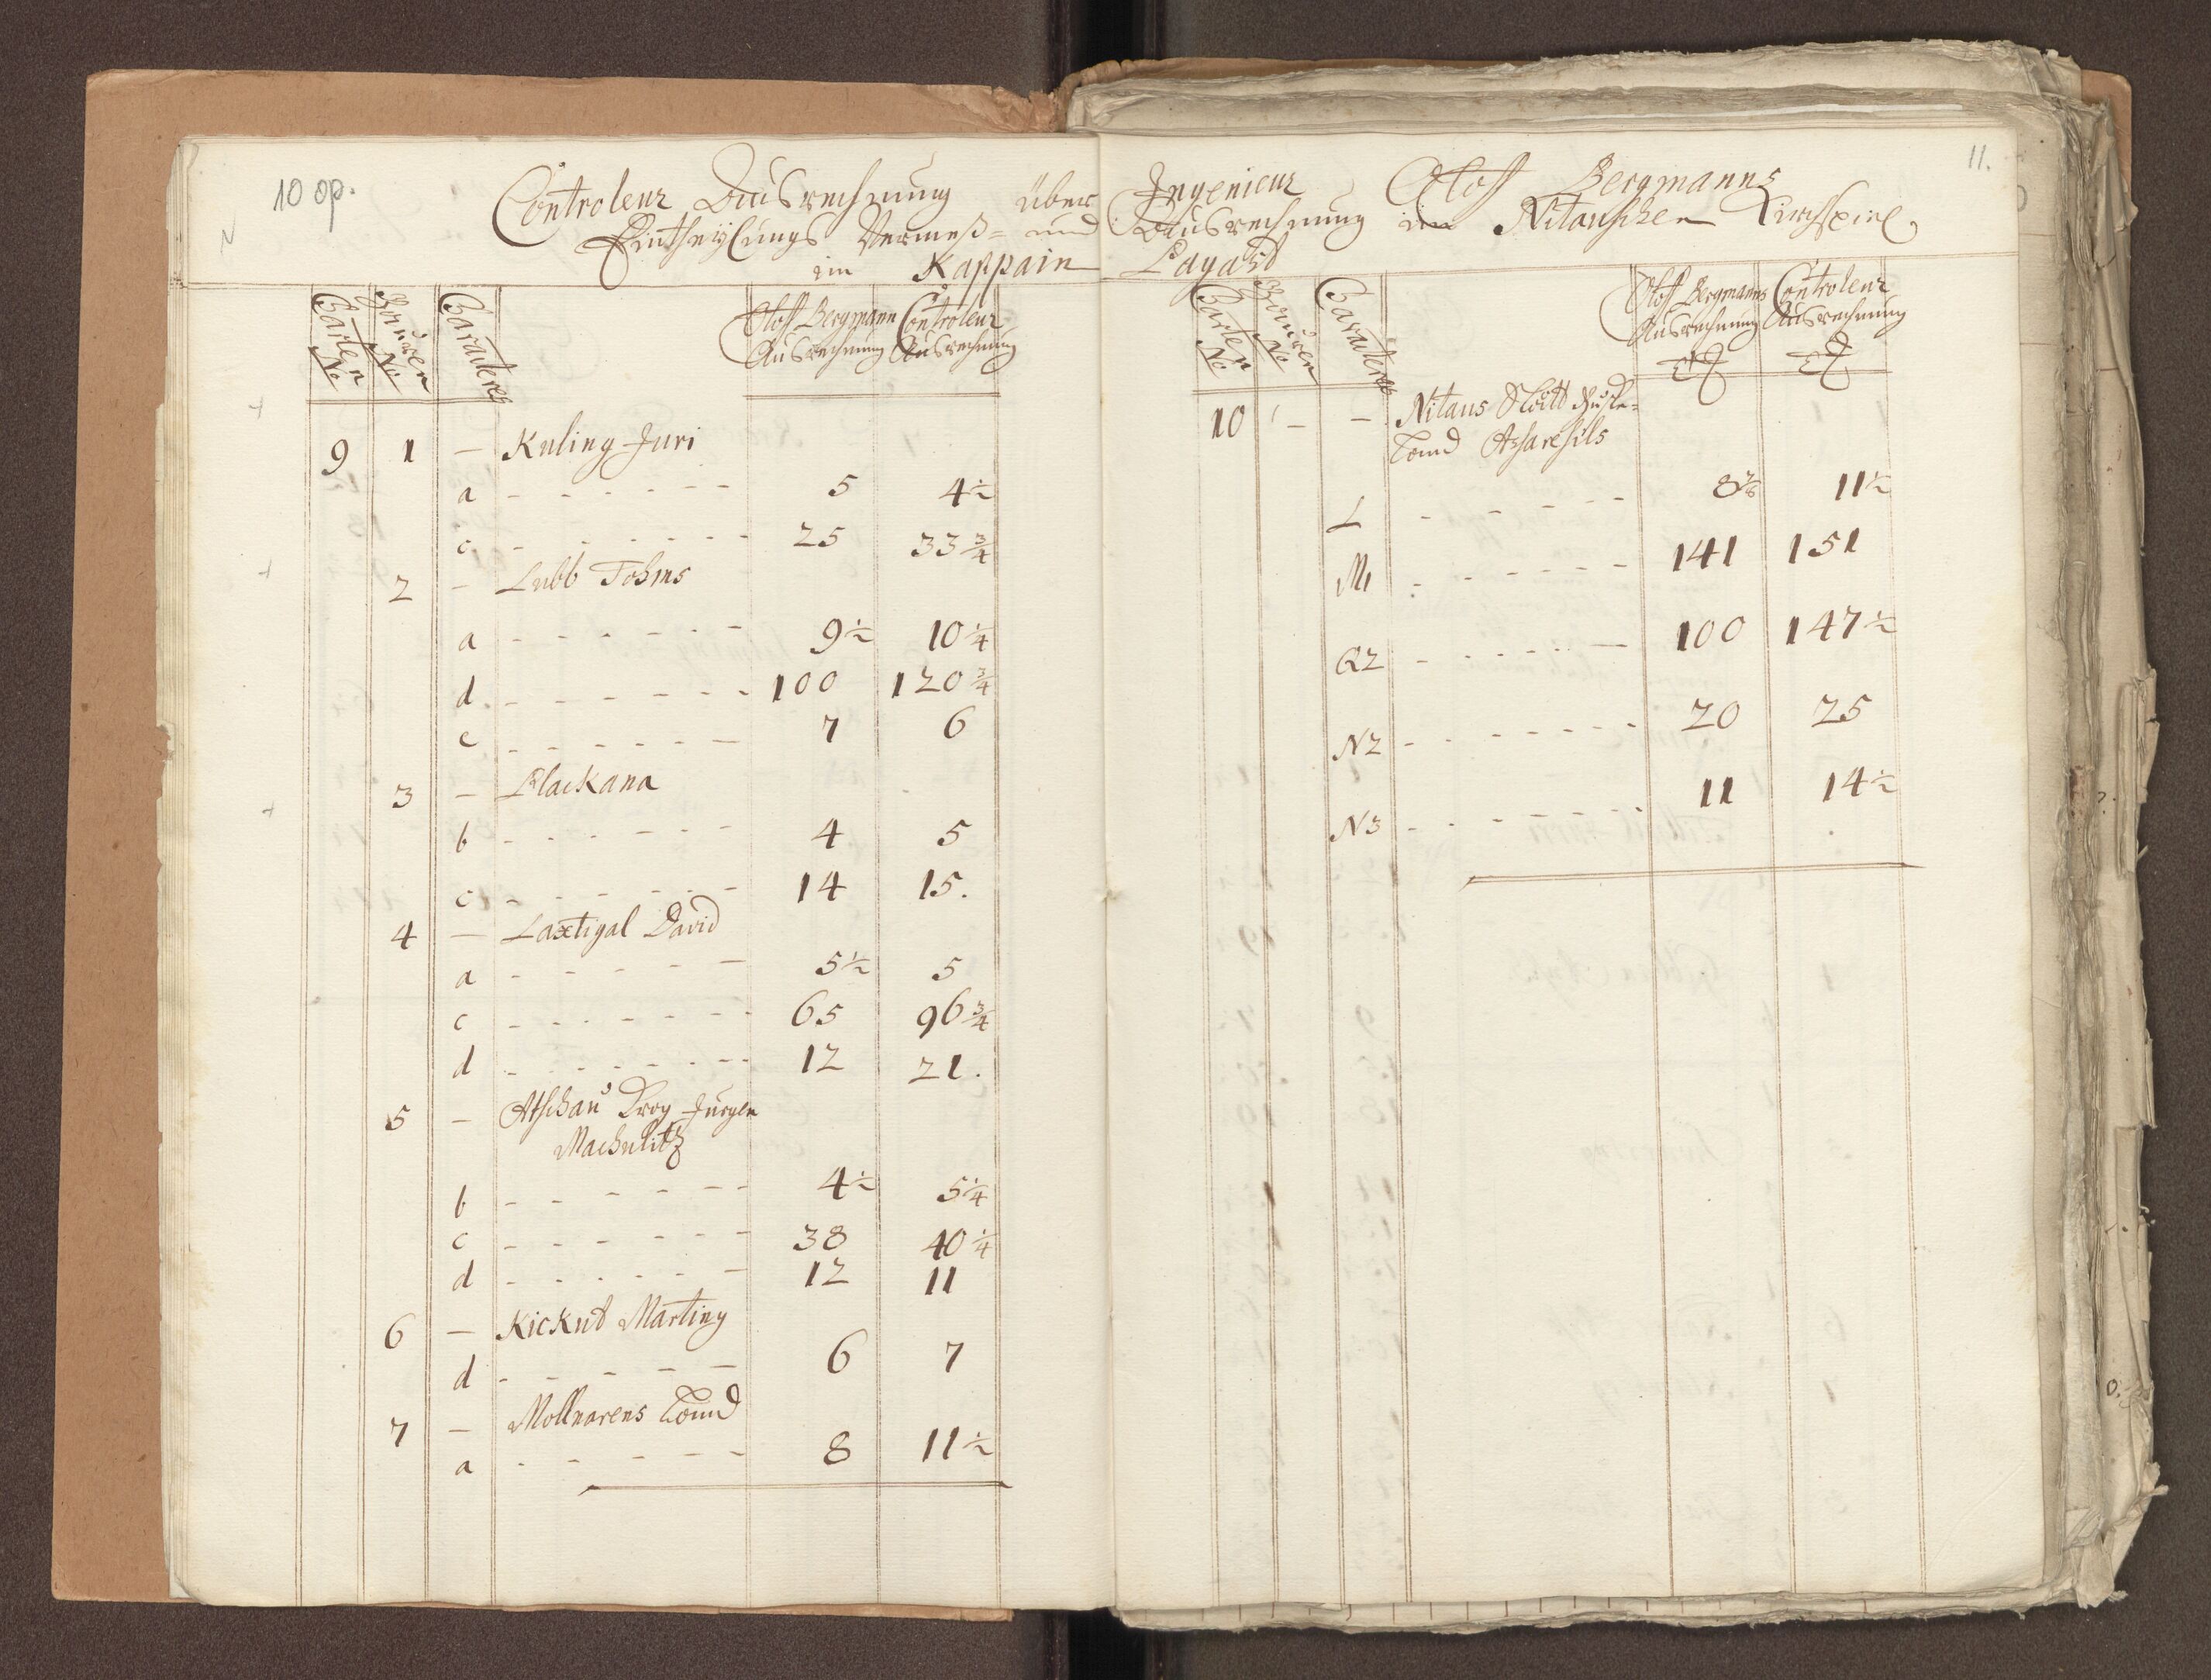 10 op.
11.
Controleur Ausrechnung über Ingenieur Oloff Bergmanns
Eintheylungs Vermeß= und Ausrechnung im Nitauschen Kirchspiel
im Kappain Pagast
Carten No
Bauren No
Caracteres
Oloff Bergmann Ausrechnung
Controleur Ausrechnung
9 1 — Kuling Juri
a - - - - - - 5 4½
c - - - - - - 25 33¾
2 — Lubb Tohms
a - - - - - - 9½ 10¼
d - - - - - - 100 120¾
e - - - - - - 7 6
3 — Plackana
b - - - - - - 4 5
c - - - - - - 14 15.
4 — Laxtigal David
a - - - - - - 5½ 5
c - - - - - - 65 96¾
d - - - - - - 12 21.
5 — Atschau Droy Jurgen
Machulitz
b - - - - - - 4½ 5¼
c - - - - - - 38 40¼
d - - - - - - 12 11
6 — Kickut Marting
d - - - - - - 6 7
7 — Mollnarens Land
a - - - - - - 8 11½
Carten No
Bauren No
Caracteres
Oloff Bergmanns Ausrechnung
Controleur Ausrechnung
10 — — Nitaus
Land
L - - - - - - 11½
M1 - - - - - - 141 151
Q2 - - - - - - 100 147½
N2 - - - - - - 20 25
N3 - - - - - - 11 14½